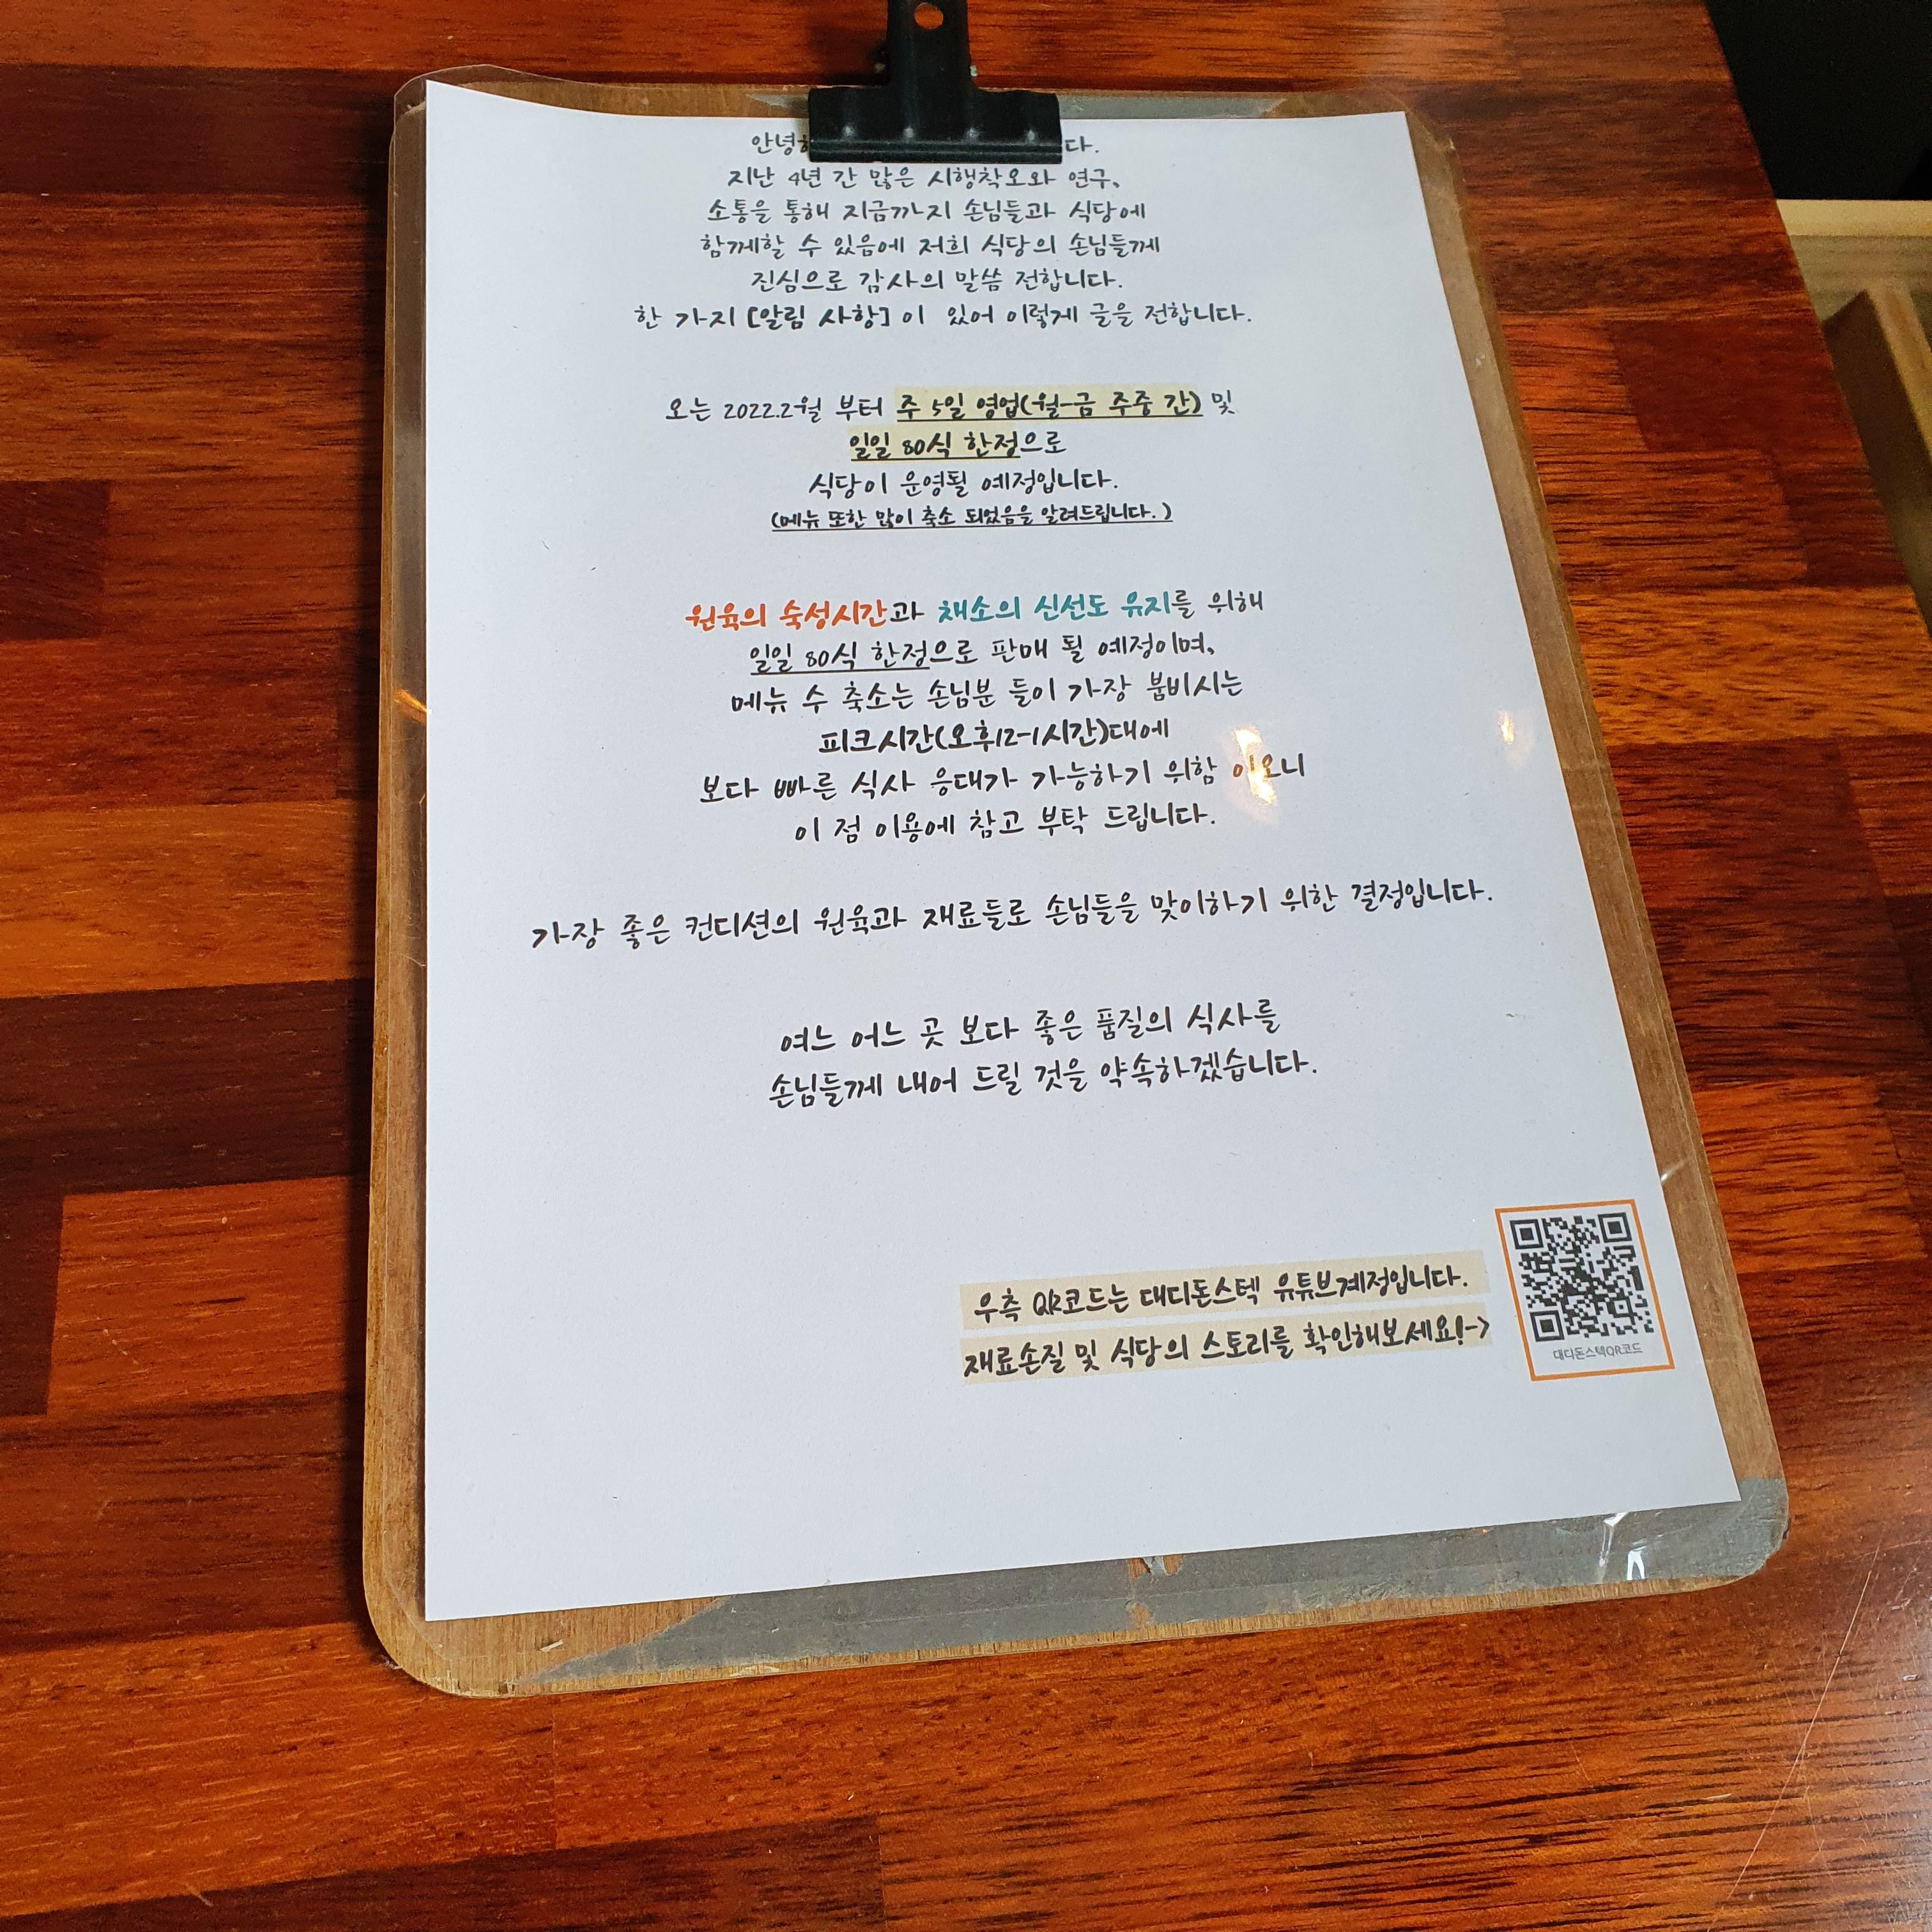 다.
지난 4년 간 많은 시행착오와 연구,
소통을 통해 지금까지 손님들과 식당에
함께할 수 있음에 저희 식당의 손님들께
진심으로 감사의 말씀 전합니다.
한 가지 [알림 사항] 이 있어 이렇게 글을 전합니다.
오는 2022.2월 부터 주 5일 영업(월-금 주중 간) 및
일일 80식 한정으로
식당이 운영될 예정입니다.
(메뉴 또한 많이 축소 되었음을 알려드립니다.)
원육의 숙성시간과 채소의 신선도 유지를 위해
일일 80식 한정으로 판매 될 예정이며,
메뉴 수 축소는 손님분 들이 가장 붐비시는
피크시간(오후12-1시간)대에
보다 빠른 식사 응대가 가능하기 위함 이오니
이 점 이용에 참고 부탁 드립니다.
가장 좋은 컨디션의 원육과 재료들로 손님들을 맞이하기 위한 결정입니다.
여느 어느 곳 보다 좋은 품질의 식사를
손님들께 내어 드릴 것을 약속하겠습니다.
우측 QR코드는 대디돈스텍 유튜브계정입니다.
재료손질 및 식당의 스토리를 확인해보세요!->
대디돈스텍QR코드